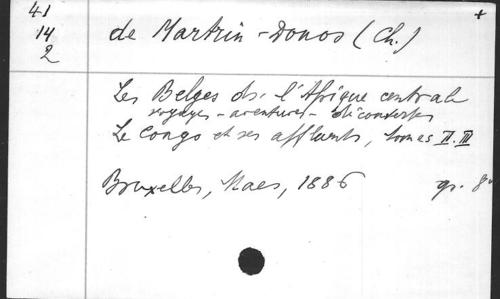 41
14
2
+
de Martrin-Donos (Ch.)
Les Belges ds. l'Afrique centrale
voyages - aventures - découvertes
Le Congo et ses affluents, tomes II.III
Bruxelles, Maes, 1886 gr. 8°